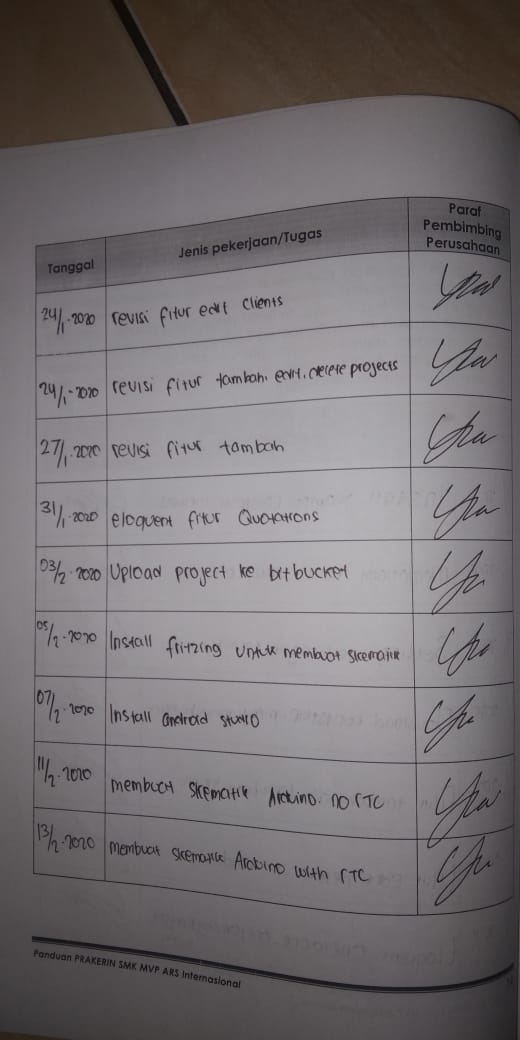 Tanggal
Jenis pekerjaan/Tugas
Paraf
Pembimbing
Perusahaan
24/1-2020 revisi fitur edit clients
24/1-2020 revisi fitur tambah, edit, delete projects
27/1.2020 revisi fitur tambah
31/1.2020 eloquent fitur Quotations
03/2.2020 Upload project ke bitbucket
05/2-2020 Install fritzing untuk membuat skematik
07/2.2020 Install android studio
11/2.2020 membuat skematik Arduino. no RTC
13/2.2020 membuat skematik Arduino with RTC
Panduan PRAKERIN SMK MVP ARS Internasional